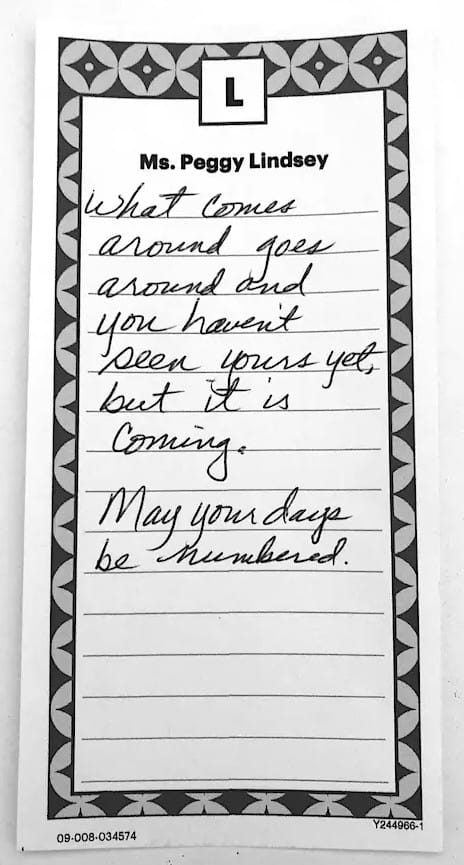 L
Ms. Peggy Lindsey
What comes
around goes
around and
you haven't
seen yours yet,
but it is
coming.
May your days
be numbered.
09-008-034574
Y244966-1